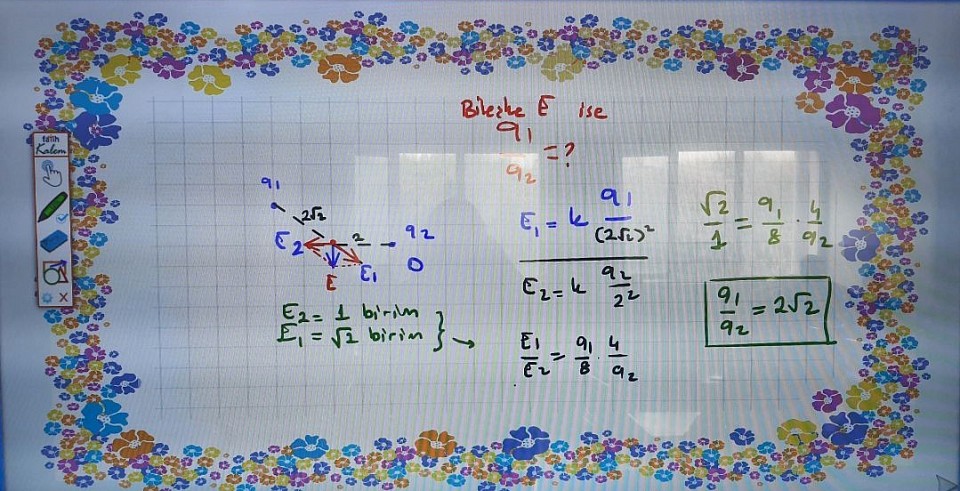 fatih
Kalem
Bileşke E ise
q1
q2
=?
q1
2√2
E2
2
q2
E
E1
0
E2 = 1 birim
E1 = √2 birim
E1 = k q1/(2√2)²
E2 = k q2/2²
E1/E2 = q1/8 · 4/q2
√2/1 = q1/8 · 4/q2
q1/q2 = 2√2